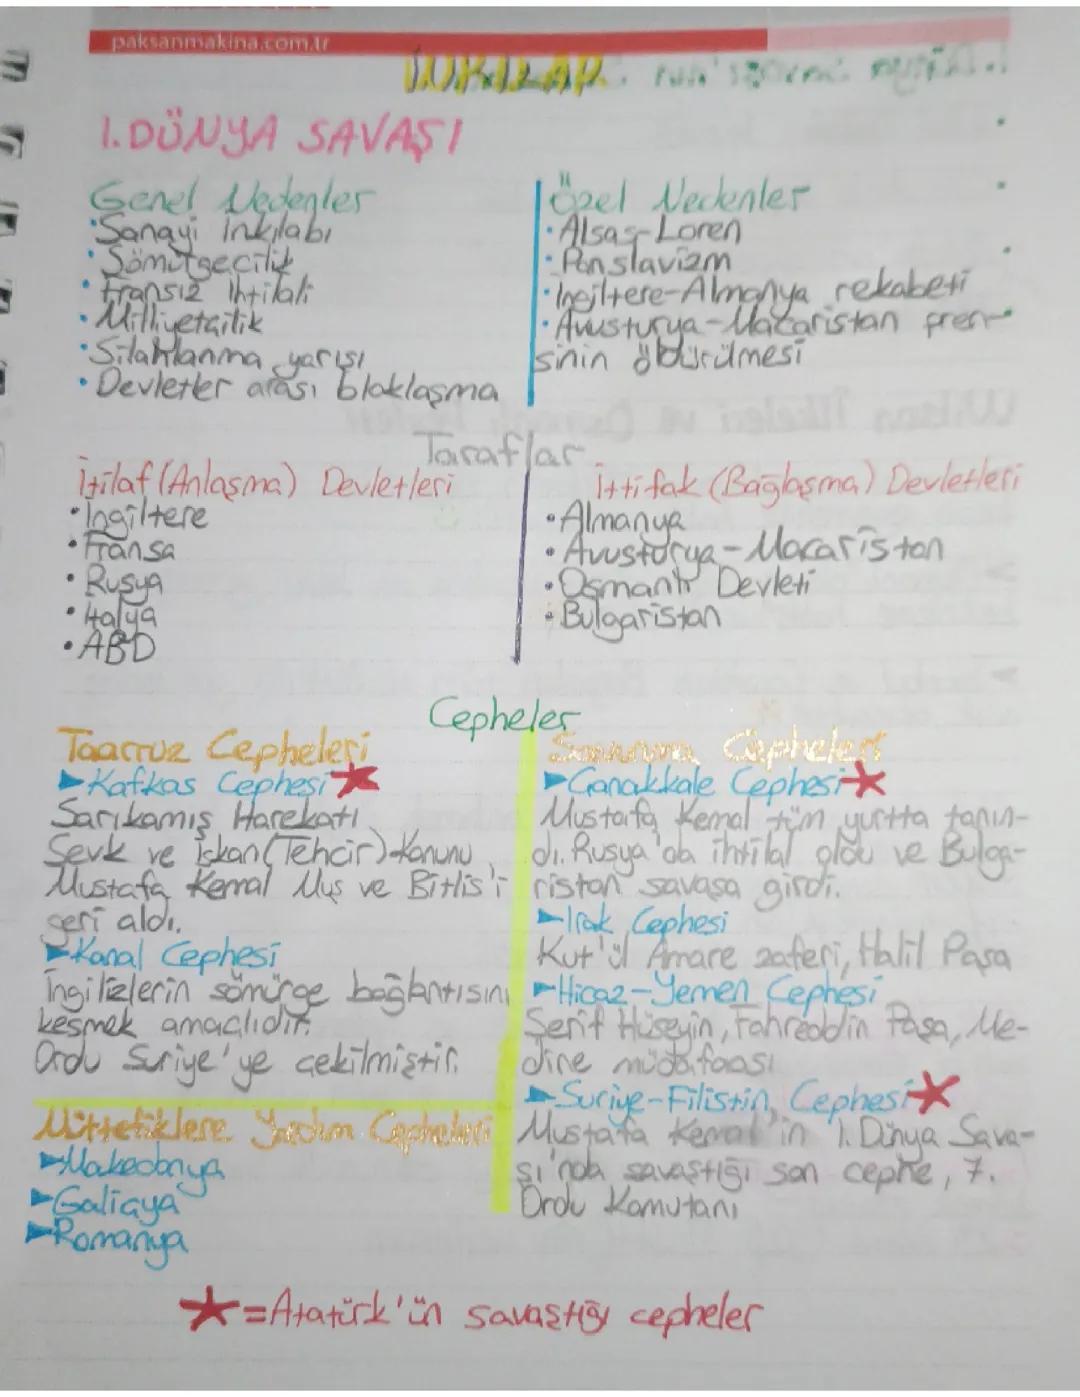 paksanmakina.com.tr
İNKILAP
1. DÜNYA SAVAŞI
Genel Nedenler
• Sanayi inkılabı
• Sömürgecilik
• Fransız ihtilali
• Milliyetçilik
• Silahlanma yarışı
• Devletler arası bloklaşma
Özel Nedenler
• Alsas-Loren
• Panslavizm
• İngiltere-Almanya rekabeti
• Avusturya-Macaristan pren-
sinin öldürülmesi
Taraflar
İtilaf (Anlaşma) Devletleri
• İngiltere
• Fransa
• Rusya
• İtalya
• ABD
İttifak (Bağlaşma) Devletleri
• Almanya
• Avusturya-Macaristan
• Osmanlı Devleti
• Bulgaristan
Cepheler
Taarruz Cepheleri
►Kafkas Cephesi ★
Sarıkamış Harekatı
Sevk ve İskan (Tehcir) Kanunu
Mustafa Kemal Muş ve Bitlis'i
geri aldı.
►Kanal Cephesi
İngilizlerin sömürge bağlantısını
kesmek amaçlıdır.
Ordu Suriye'ye çekilmiştir.
Müttefiklere Yardım Cepheleri
►Makedonya
►Galiçya
►Romanya
Savunma Cepheleri
►Çanakkale Cephesi ★
Mustafa Kemal tüm yurtta tanın-
dı. Rusya'da ihtilal oldu ve Bulga-
ristan savaşa girdi.
►Irak Cephesi
Kut'ül Amare zaferi, Halil Paşa
►Hicaz-Yemen Cephesi
Şerif Hüseyin, Fahreddin Paşa, Me-
dine müdafaası
►Suriye-Filistin Cephesi ★
Mustafa Kemal'in 1. Dünya Sava-
şı'nda savaştığı son cephe, 7.
Ordu Komutanı
★=Atatürk'ün savaştığı cepheler